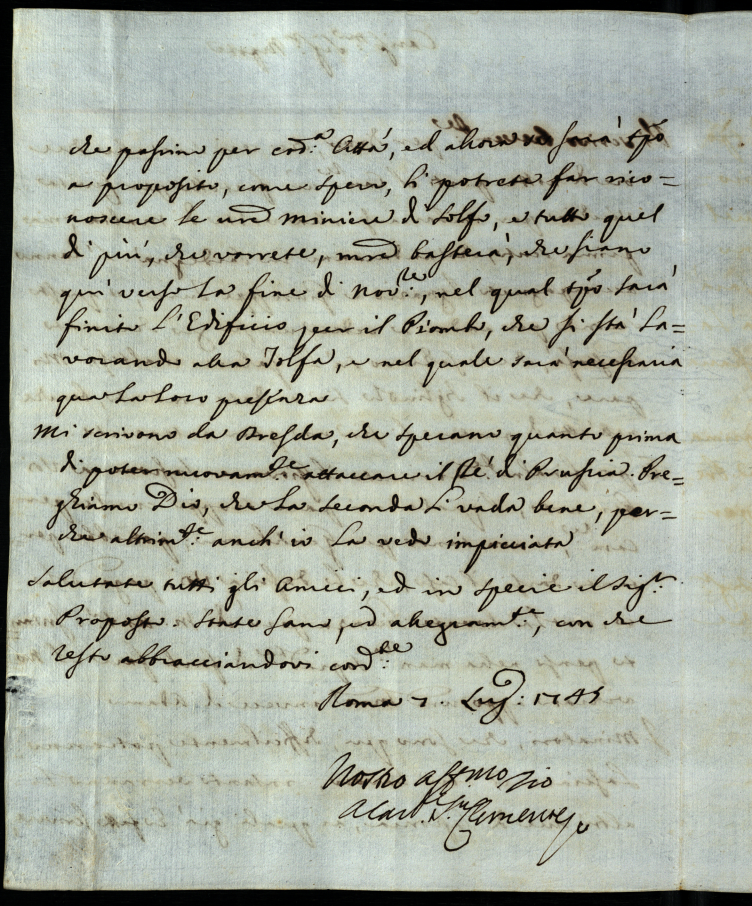 che passino per cod:ª Città, ed allora sarà tpō
a proposito, come spero, li potrete far rico=
noscere le vrē miniere di solfo, e tutto quel
di più, che vorrete, mrē basterà, che siano
qui verso la fine di Nov:re, nel qual tpō sarà
finito l'Edificio per il Piombo, che si stà la=
vorando alla Tolfa, e nel quale sarà necessaria
qua la loro presenza
Mi scrivono da Dresda, che sperano quanto prima
di poter nuovam:te attaccare il Rè di Prussia. Pre=
ghiamo Dio, che la seconda li vada bene, per=
che altrim:te anch'io la vedo impicciata
Salutate tutti gli Amici, ed in specie il Sig:r
Proposto. State sano, ed allegram:te, con che
resto abbracciandovi cord:te
Roma 7. Lug: 1745
Vostro affmo Zio